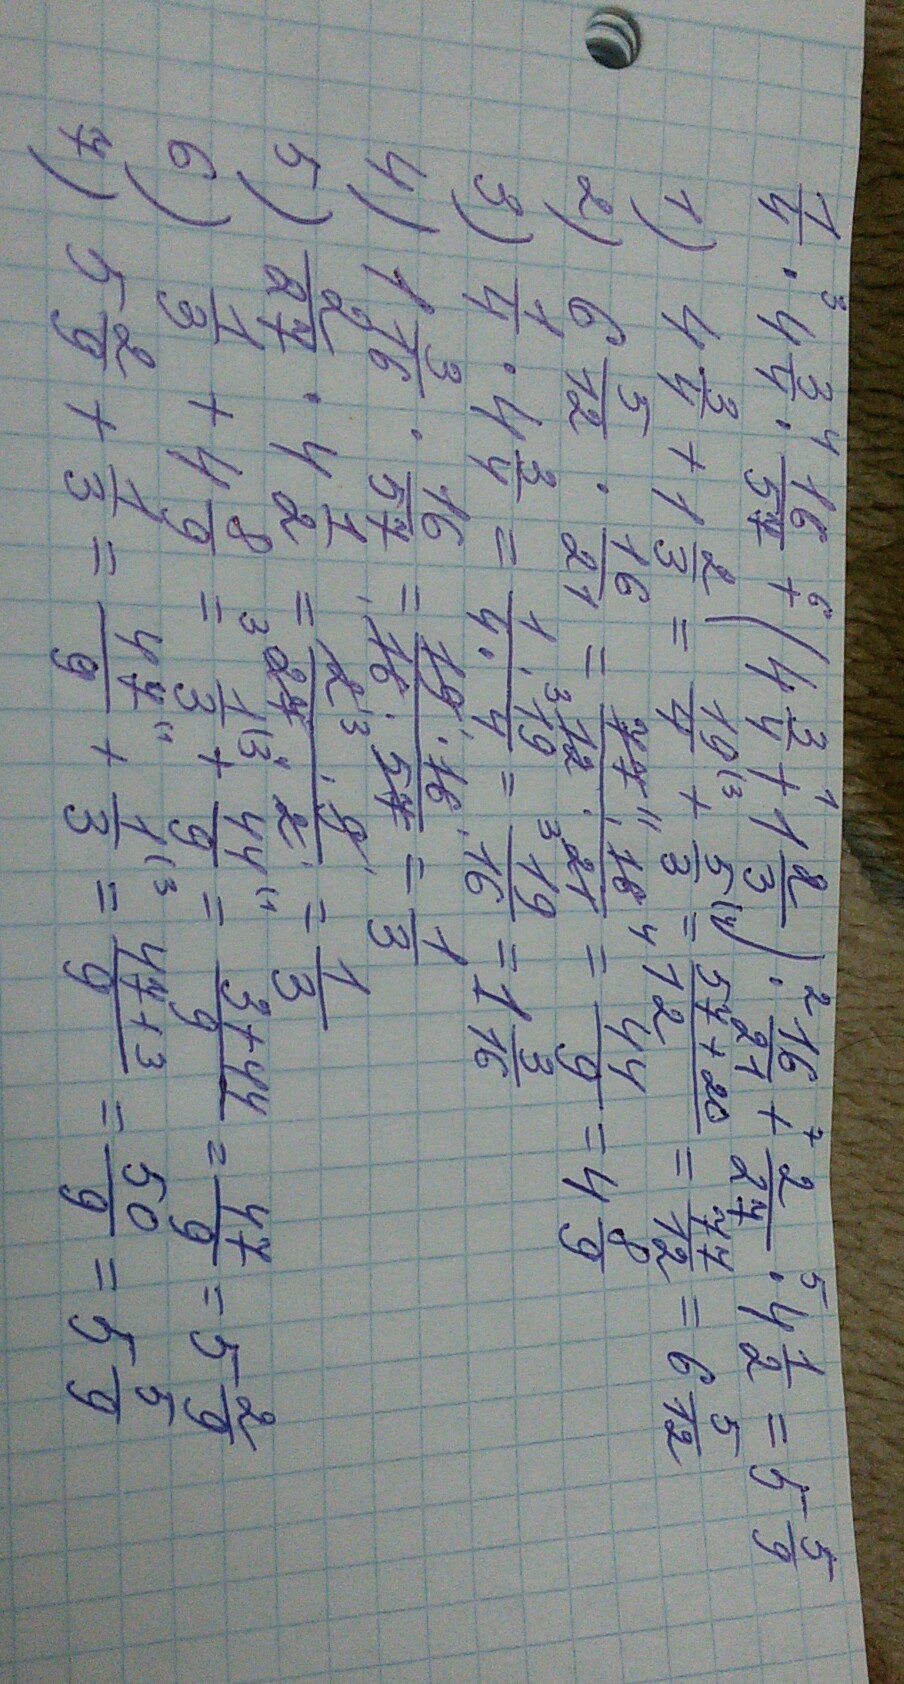 1/4 ·³ 4 3/4 ·⁴ 16/57 +⁶ (4 3/4 +¹ 1 2/3) ·² 16/21 +⁷ 2/27 ·⁵ 4 1/2 = 5 5/9
1) 4 3/4 + 1 2/3 = 19/4 + 5/3 = 57+20/12 = 77/12 = 6 5/12
2) 6 5/12 · 16/21 = 77 · 16/12 · 21 = 44/9 = 4 8/9
3) 1/4 · 4 3/4 = 1 · 19/4 · 4 = 19/16 = 1 3/16
4) 1 3/16 · 16/57 = 19 · 16/16 · 57 = 1/3
5) 2/27 · 4 1/2 = 2 · 9/27 · 2 = 1/3
6) 1/3 + 4 8/9 = 1/3 + 44/9 = 3+44/9 = 47/9 = 5 2/9
7) 5 2/9 + 1/3 = 47/9 + 1/3 = 47+3/9 = 50/9 = 5 5/9